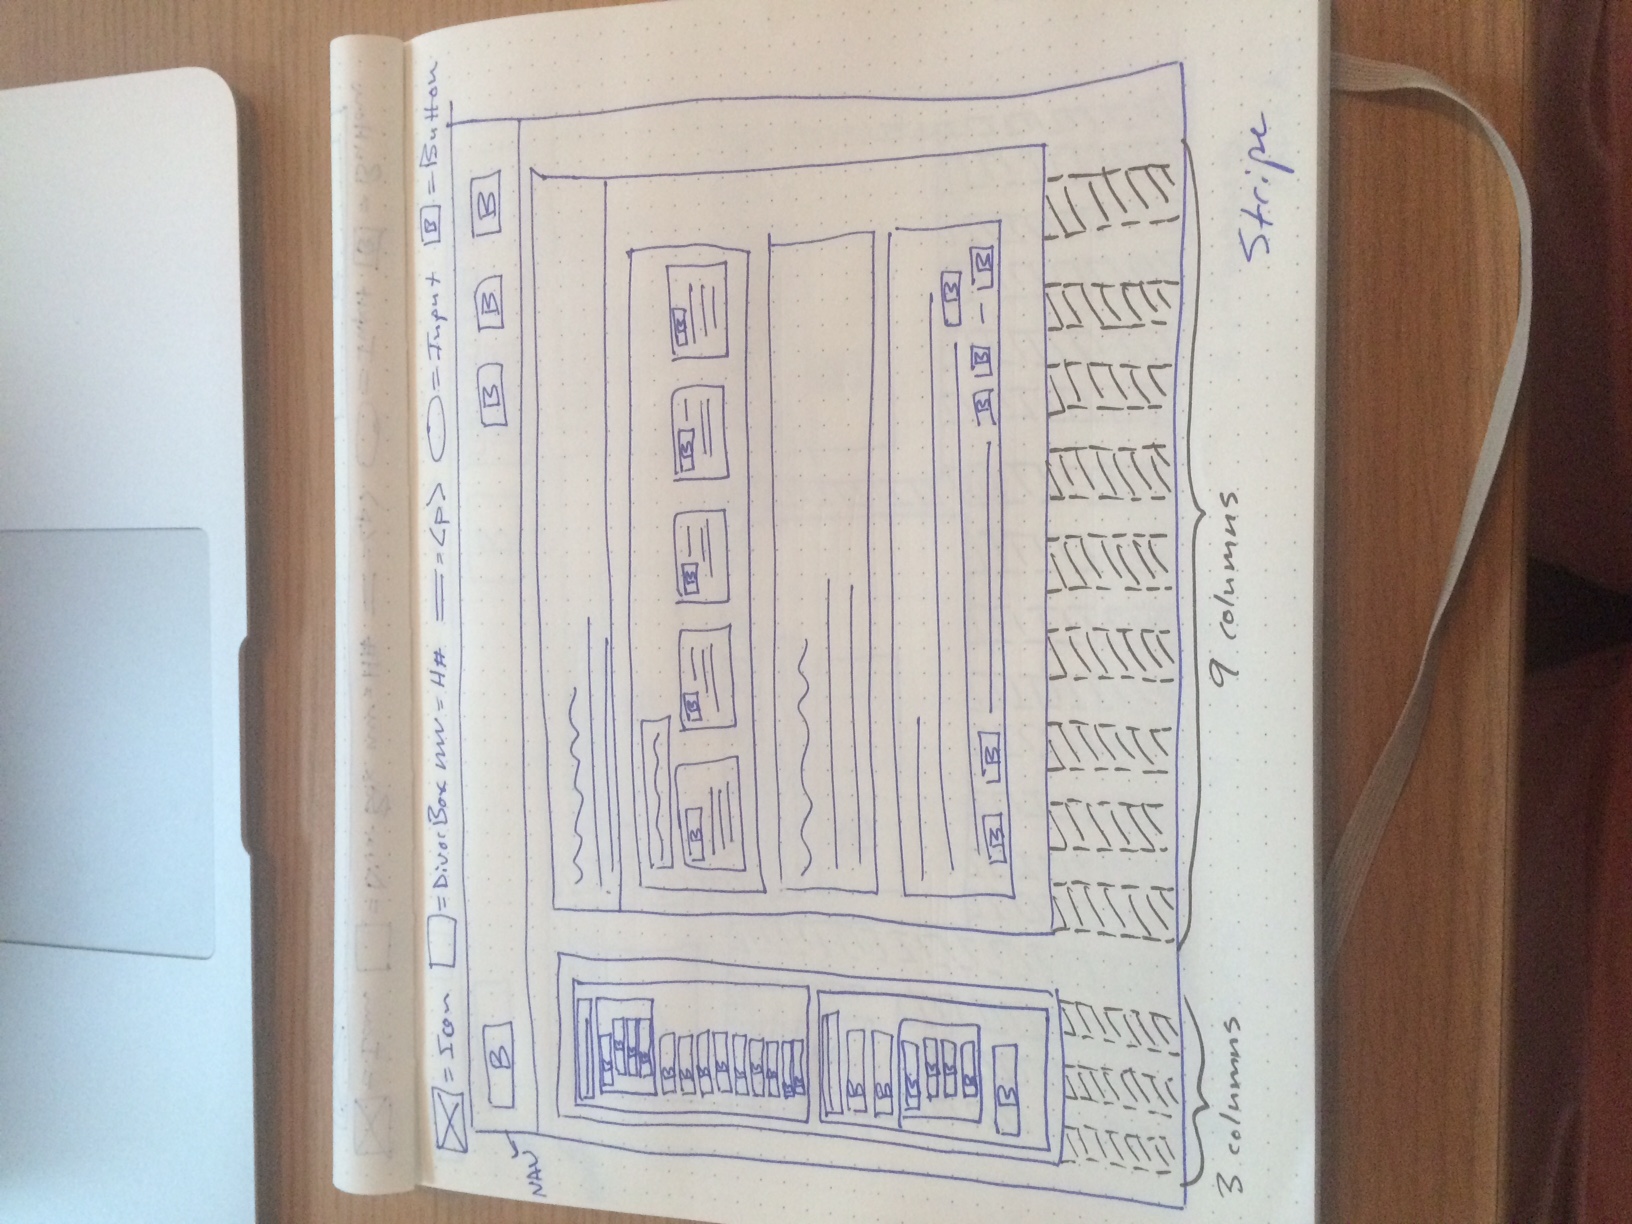 = Icon = Div or Box = H# = <p> = Input B = Button
B B B B
NAV
B
B
B
B
B
B
B
B
B
B
B
B
B
B
B B B B B
B
B
B
B
B
B
B
B
B B B B B
3 columns 9 columns
Stripe